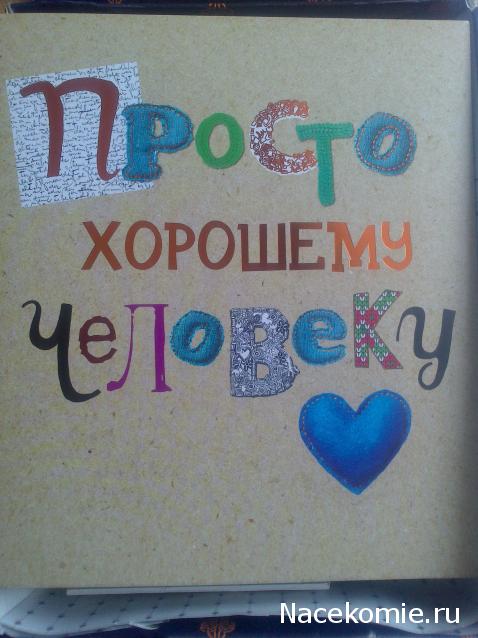 Просто
ХОРОШЕМУ
ЧеЛоВеКу
Nacekomie.ru